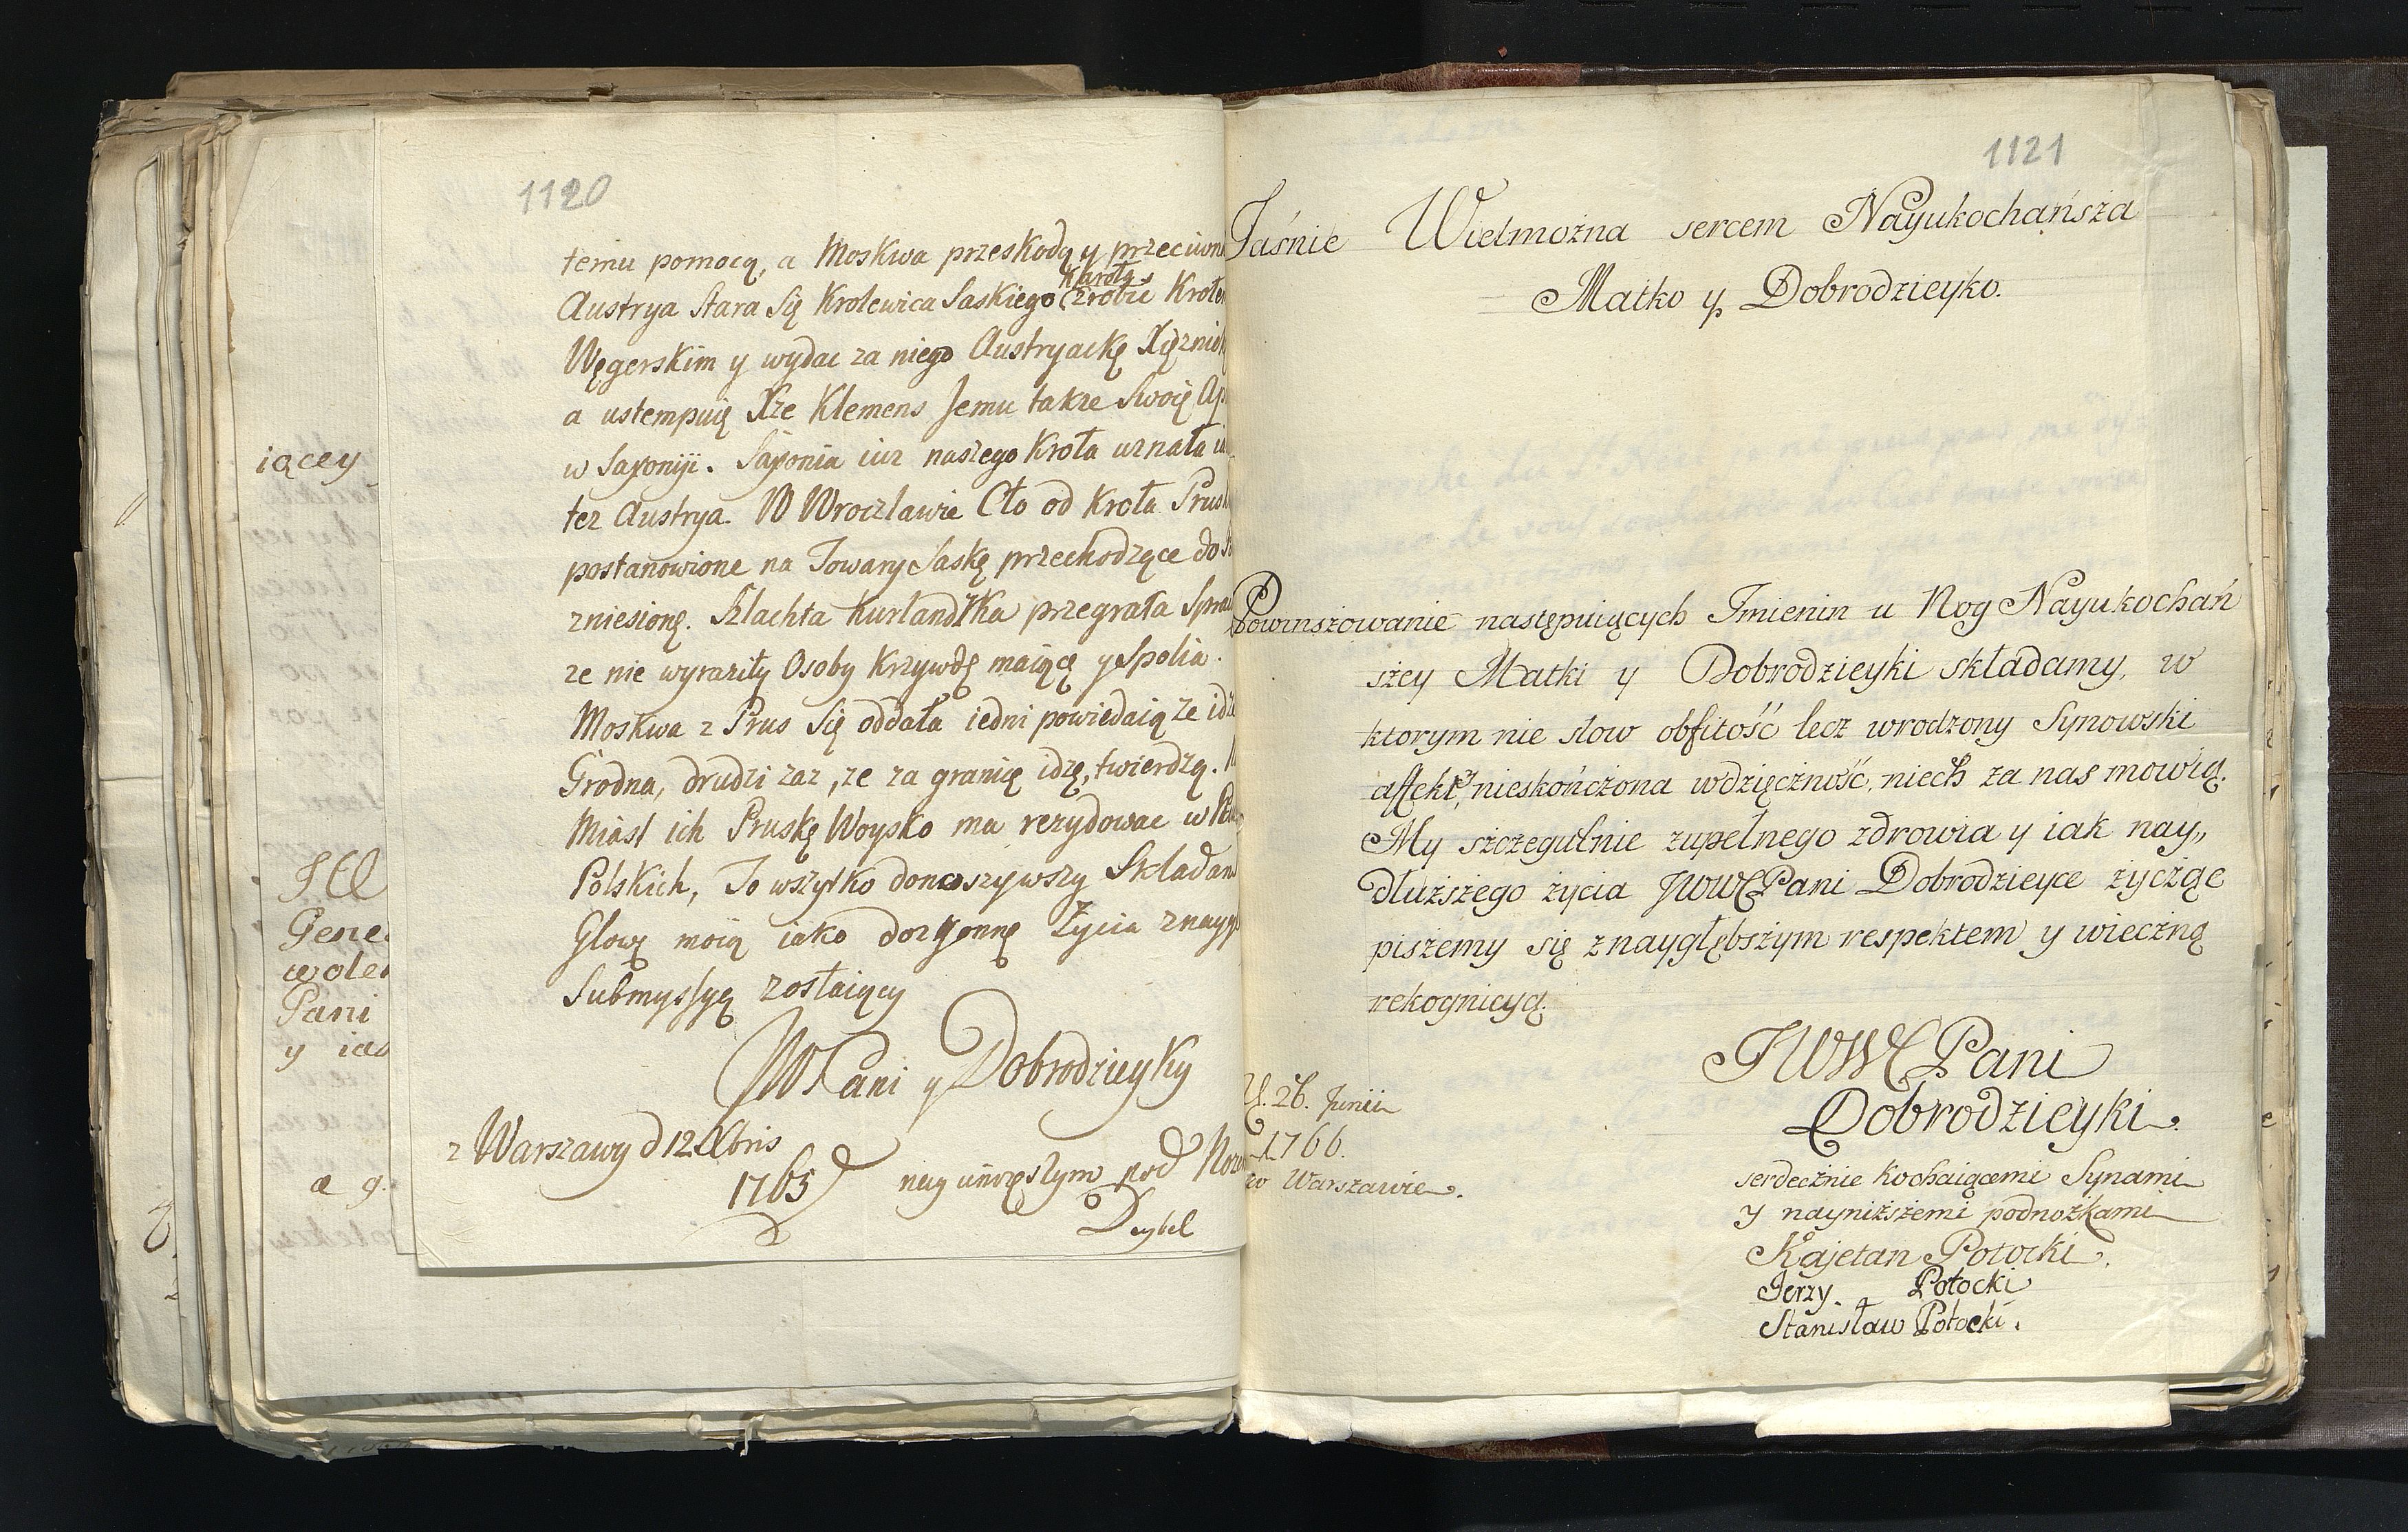 1120
temu pomocą, a Moskwa przeskodą y
Karola
Austrya Stara Się Krolewica Saskiego zrobic
Węgerskim y wydac za niego Austryackę
a ustempuię Xże Klemens Jemu takze Swoię
w Saxonii. Saxonia iuz naszego Krola uznała
tez Austrya. W Wroclawie Cło od Krola
postanowione na Towary Saskę przechodzęce do
znieśionę. Szlachta Kurlandzka przegrała
ze nie wyraziły Osoby Krzywdę maięcę y Spolia.
Moskwa z Prus Się oddała iedni powiedaią ze
Grodna, drudzi zaz, ze za granicę idzę, twierdzą.
Miast ich Pruskę Woysko ma rezydowac w
Polskich, To wszytko donoszywszy
Glowę moią iako dozgonnę Życia
Submyssyą zostaiący
JWPani y Dobrodzieyky
z Warszawy d 12. Xbris
1765
nay unizęszym pod
Deybel
iącey
Pani
1121
Jaśnie Wielmożna sercem Nayukochańsza
Matko y Dobrodzieyko.
Powinszowanie następuiących Imienin u Nog Nayukochań
szey Matki y Dobrodzieyki składamy, w
ktorym nie słow obfitość lecz wrodzony Synowski
affekt, nieskończona wdzięczność, niech za nas mowią.
My szczegulnie zupełnego zdrowia y iak nay„
dłuższego życia JWWCPani Dobrodzieyce życząc
piszemy się z naygłębszym respektem y wieczną
rekognicyą.
JWWCPani
Dobrodzieyki.
26. Junii
1766.
w Warszawie.
serdecznie kochaiącemi Synami
y nayniższemi podnożkami
Kajetan Potocki.
Jerzy Potocki
Stanisław Potocki.